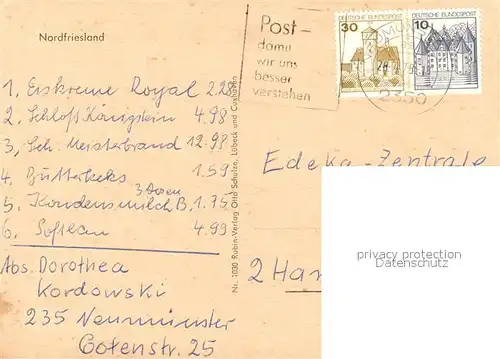 Nordfriesland
1, Eiskreme Royal 2.28
2, Schloß Königstein 4.98
3, Sch. Meisterbrand 12.98
4. Butterkeks 1.59
3 Dosen
5. Kondensmilch B. 1.75
6. Softlan 4.99
Abs. Dorothea
Kordowski
235 Neumünster
Gotenstr. 25
Nr. 1030 Rubin-Verlag Otto Schulze, Lübeck und Cuxhaven
Post-
damit
wir uns
besser
verstehen
30
DEUTSCHE BUNDESPOST
DEUTSCHE BUNDESPOST
10
2350
Edeka-Zentrale
2 Ham
privacy protection
Datenschutz